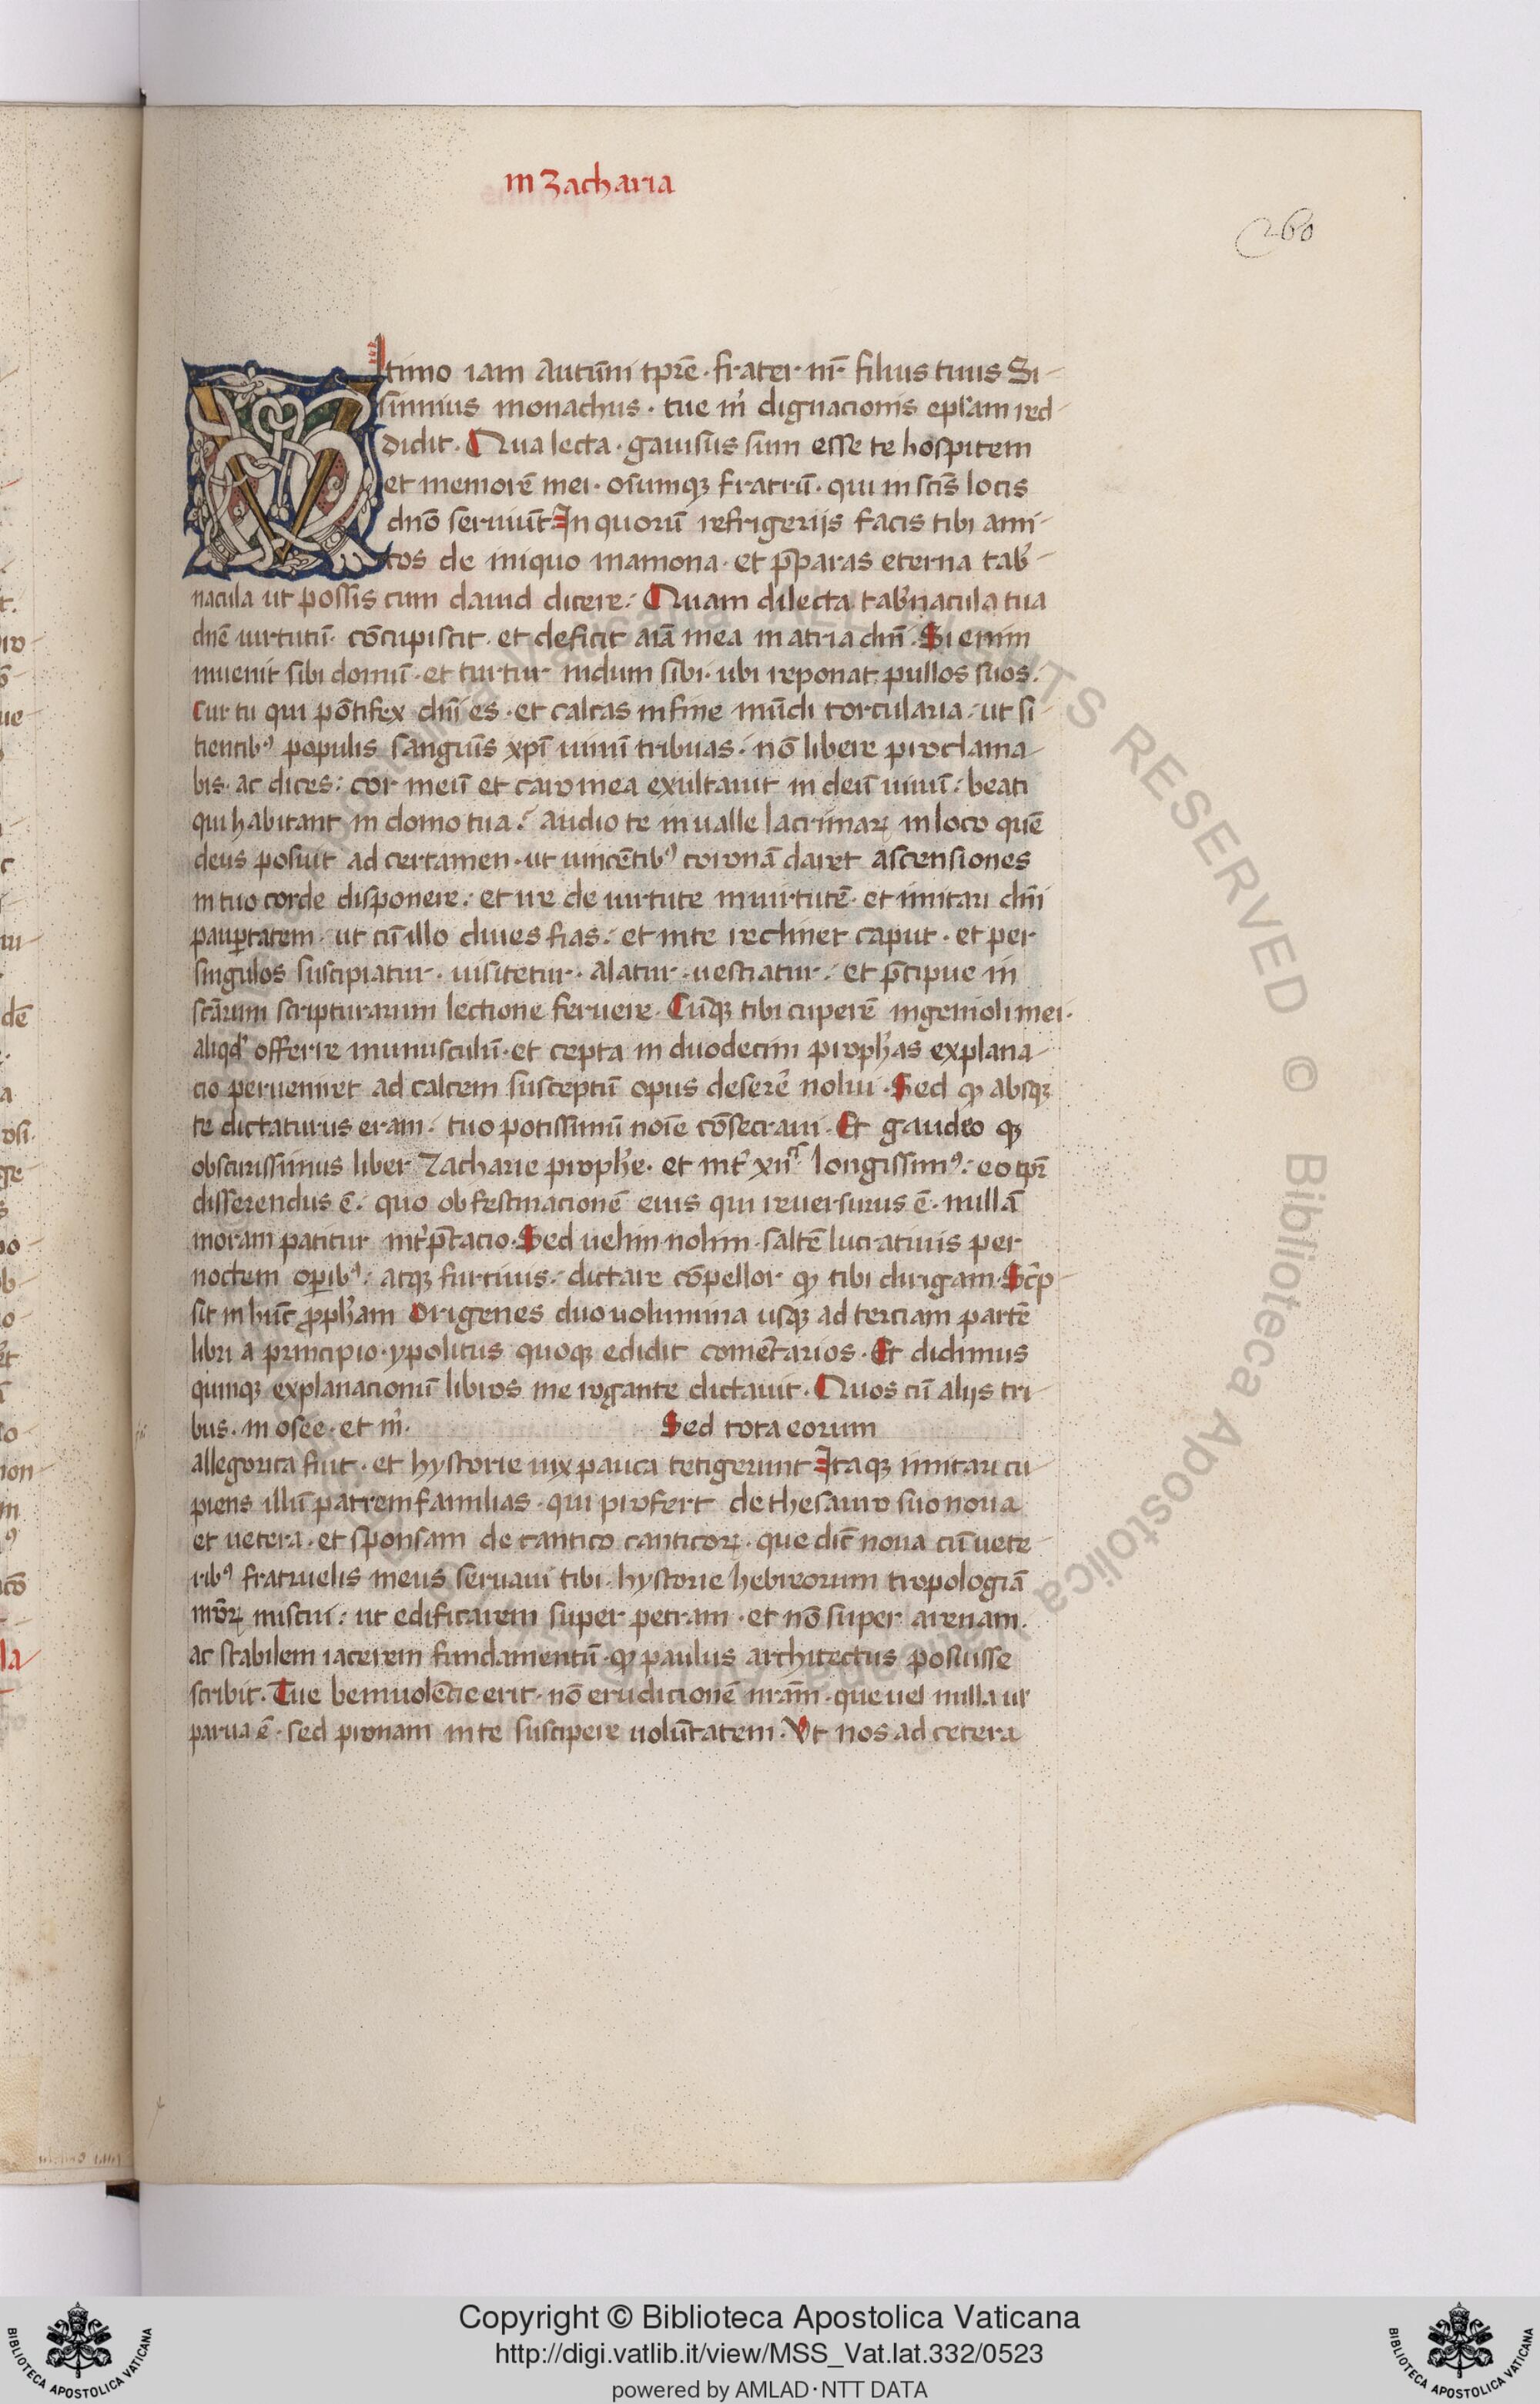 in Zacharia
260
Vltimo iam autūni tp̄re · frater nr̄ filius tuus Si-
sinnius monachus · tue m̄ dignacionis ep̄l'am red-
didit · Qua lecta · gauisus sum esse te hospitem
et memorē mei · osumqꝫ fratrū · qui in sc̄is locis
dn̄o seruiūt In quorū refrigerijs facis tibi ami-
cos de iniquo mamona · et p̄paras eterna tab'-
nacula ut possis cum dauid dicere : Quam dilecta tab'nacula tua
dn̄e uirtutū · cōcupiscit · et deficit aīa mea in atria dn̄i · Si enim
inuenit sibi domū · et turtur nidum sibi · ubi reponat pullos suos :
Cur tu qui pōtifex dn̄i es · et calcas in fine mūdi torcularia : ut si-
tientibꝰ populis sanguīs xp̄i uinū tribuas : nō libere proclama-
bis · ac dices : cor meū et caro mea exultauit in deū uiuū : beati
qui habitant in domo tua : audio te in ualle lacrimaꝝ in loco quē
deus posuit ad certamen · ut uincētibꝰ coronā daret ascensiones
in tuo corde disponere : et ire de uirtute in uirtutē · et imitari dn̄i
paup̱tatem · ut cū illo diues fias : et in te reclinet caput · et per
singulos suscipiatur · uisitetur · alatur · uestiatur : et p̄cipue in
scārum scripturarum lectione feruere · Cūqꝫ tibi cuperē ingenioli mei ·
aliqd' offerre munusculū · et cepta in duodecim proph'as explana-
cio perueniret ad calcem susceptū opus deserē nolui · Sed ꝙ absqꝫ
te dictaturus eram · tuo potissimū noīe cōsecraui · Et gaudeo qꝫ
obscurissimus liber Zacharie proph'e · et int' xii longissimꝰ : eo tp̄r
disserendus ē : quo ob festinacionē eius qui reuersurus ē · nullā
moram patitur int'p̄tacio · Sed uelim nolim · saltē lucratiuis per
noctem op̱ibꝰ : atqꝫ furtiuis : dictare cōpellor ꝙ tibi dirigam · Sc̄p-
sit in hūc ꝓph'am Origenes duo uolumina usqꝫ ad terciam partē
libri a principio · ypolitus quoqꝫ edidit comētarios · Et didimus
quinqꝫ explanacionū libros me rogante dictauit · Quos cū alijs tri-
bus · in osee · et m̄ · Sed tota eorum
allegorica fuit · et hystorie uix pauca tetigerunt Itaqꝫ imitari cu-
piens illū patremfamilias · qui profert de thesauro suo noua
et uetera · et sponsam de cantico canticoꝝ · que dic̄ noua cū uete-
ribꝰ fratruelis meus seruaui tibi · hystorie hebreorum tropologiā
nr̄oꝝ miscui : ut edificarem super petram · et nō super arenam ·
ac stabilem iacerem fundamentū · ꝙ paulus architectus posuisse
scribit · Tue beniuolēcie erit · nō erudicionē nr̄am · que uel nulla ul'
parua ē · sed pronam in te suscipere uolūtatem · Vt nos ad cetera
Copyright © Biblioteca Apostolica Vaticana
http://digi.vatlib.it/view/MSS_Vat.lat.332/0523
powered by AMLAD · NTT DATA